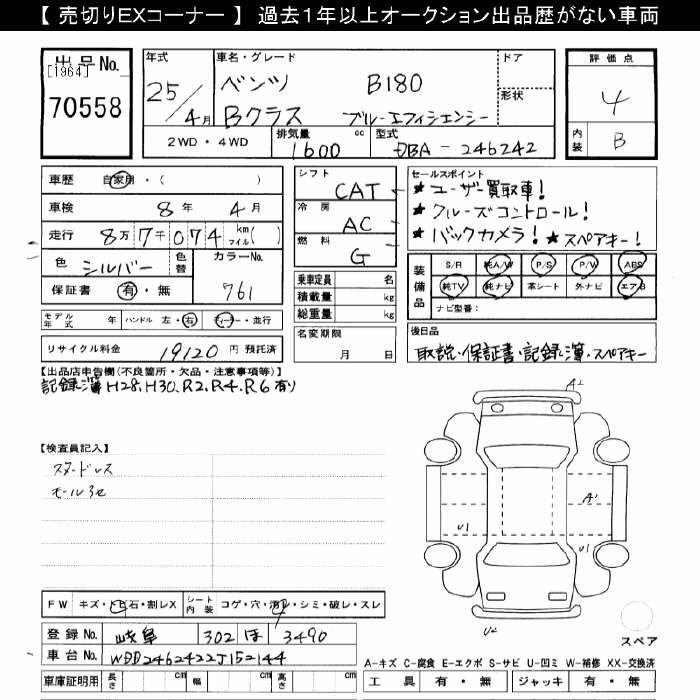 【 売切りEXコーナー 】 過去1年以上オークション出品歴がない車両
出品No.
[1964]
70558
年式
25/4月
車名・グレード
ベンツ B180
Bクラス ブルーエフィシエンシー
ドア
形状
2WD・4WD
排気量 1600 cc
型式 DBA-246242
評価点
4
内装 B
車歴 自家用・( )
車検 8年 4月
走行 8万7千074 km マイル( )
色 シルバー 色替 カラーNo. 761
保証書 有・無
モデル年式 年 ハンドル 左・右 ディーラー・並行
リサイクル料金 19120 円 預託済
シフト CAT
冷房 AC
燃料 G
乗車定員 名
積載量 kg
総重量 kg
名変期限
月 日
セールスポイント
★ユーザー買取車!
★クルーズコントロール!
★バックカメラ! ★スペアキー!
装備品
S/R 純A/W P/S P/W ABS
純TV 純ナビ 革シート 外ナビ エアB
ナビ型番:
後日品
取説・保証書・記録簿・スペアキー
【出品店申告欄(不良箇所・欠品・注意事項等)】
記録簿H28,H30,R2,R4,R6有り
【検査員記入】
スタッドレス
モール3セ
A2
A1
U1
U1
U2
スペア
FW キズ・トビ石・割レX シート内装 コゲ・穴・汚レ・シミ・破レ・スレ
登録No. 岐阜 302 ほ 3490
車台No. WDD2462422J152144
車庫証明用 長さ cm 幅 cm 高さ cm
A-キズ C-腐食 E-エクボ S-サビ U-凹ミ W-補修 XX-交換済
工具 有・無 ジャッキ 有・無